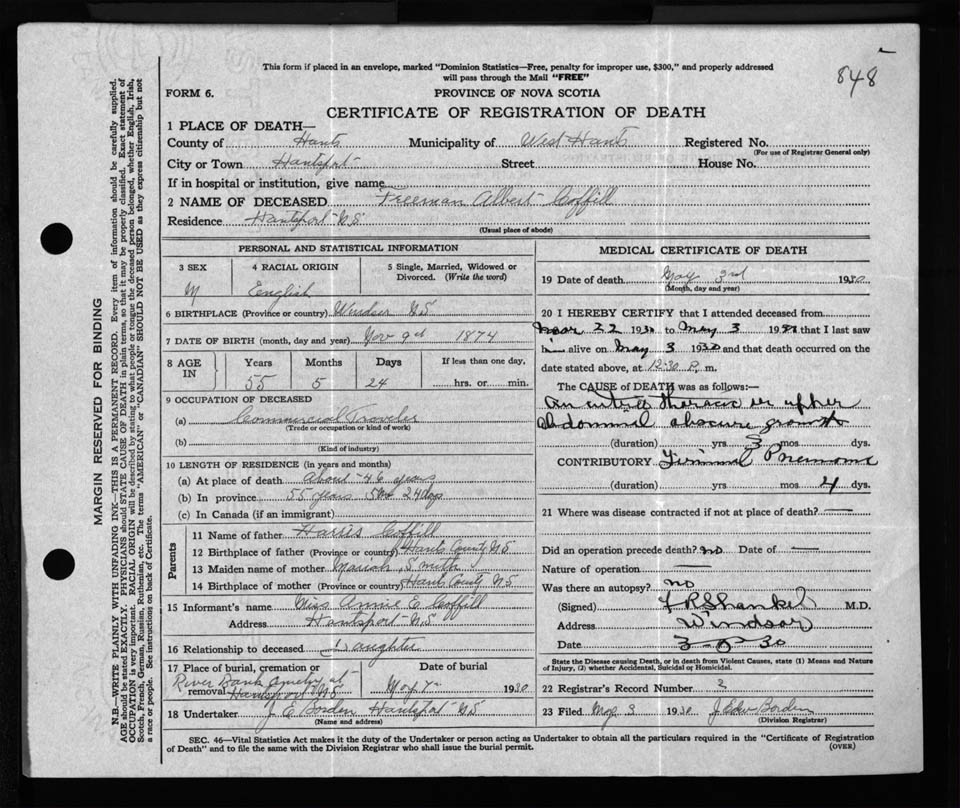 848
This form if placed in an envelope, marked "Dominion Statistics—Free, penalty for improper use, $300," and properly addressed
will pass through the Mail "FREE"
FORM 6.
PROVINCE OF NOVA SCOTIA
CERTIFICATE OF REGISTRATION OF DEATH
1 PLACE OF DEATH—
County of Hants Municipality of West Hants Registered No.
(For use of Registrar General only)
City or Town Hantsport Street House No.
If in hospital or institution, give name
2 NAME OF DECEASED Freeman Albert Coffill
Residence Hantsport N.S.
(Usual place of abode)
PERSONAL AND STATISTICAL INFORMATION
3 SEX 4 RACIAL ORIGIN 5 Single, Married, Widowed or
Divorced. (Write the word)
M English
6 BIRTHPLACE (Province or country) Windsor N.S
7 DATE OF BIRTH (month, day and year) Nov 9th 1874
8 AGE IN Years Months Days If less than one day,
55 5 24 hrs. or min.
9 OCCUPATION OF DECEASED
(a) Commercial Traveler
(Trade or occupation or kind of work)
(b)
(Kind of industry)
10 LENGTH OF RESIDENCE (in years and months)
(a) At place of death About 46 years
(b) In province 55 years 5 24 days
(c) In Canada (if an immigrant)
Parents
11 Name of father Harris Coffill
12 Birthplace of father (Province or country) Hants County N.S
13 Maiden name of mother Mariah Smith
14 Birthplace of mother (Province or country) Hants County N.S
15 Informant's name Miss Annie E Coffill
Address Hantsport N.S
16 Relationship to deceased Daughter
17 Place of burial, cremation or Date of burial
River Bank at
removal Hantsport N.S May 1930
18 Undertaker J. E Borden Hantsport N.S
(Name and address)
MEDICAL CERTIFICATE OF DEATH
19 Date of death May 3rd 1930
(Month, day and year)
20 I HEREBY CERTIFY that I attended deceased from
Mar 22 1930 to May 3 1930 that I last saw
him alive on May 3 1930 and that death occurred on the
date stated above, at 12.30 P. m.
The CAUSE of DEATH was as follows:—
thoracic or upper
abdominal obscure growth
(duration) yrs 3 mos dys.
CONTRIBUTORY Terminal Pneumonia
(duration) yrs mos 4 dys.
21 Where was disease contracted if not at place of death? —
Did an operation precede death? no Date of —
Nature of operation —
Was there an autopsy? no
(Signed) F R Shankel M.D.
Address Windsor
Date 30
State the Disease causing Death, or in death from Violent Causes, state (1) Means and Nature
of Injury, (2) whether Accidental, Suicidal or Homicidal.
22 Registrar's Record Number 2
23 Filed May 3 1930 J Edw Borden
(Division Registrar)
SEC. 46—Vital Statistics Act makes it the duty of the Undertaker or person acting as Undertaker to obtain all the particulars required in the "Certificate of Registration
of Death" and to file the same with the Division Registrar who shall issue the burial permit.
(OVER)
MARGIN RESERVED FOR BINDING
N.B.—WRITE PLAINLY WITH UNFADING INK—THIS IS A PERMANENT RECORD. Every item of information should be carefully supplied.
AGE should be stated EXACTLY. PHYSICIANS should STATE CAUSE OF DEATH in plain terms, so that it may be properly classified. Exact statement of
OCCUPATION is very important. RACIAL ORIGIN will be described by stating to what people or tongue the deceased person belonged, whether English, Irish,
Scotch, French, German, Russian, Ruthenian, etc. The terms "AMERICAN" or "CANADIAN" SHOULD NOT BE USED as they express citizenship but not
a race or people. See instructions on back of Certificate.